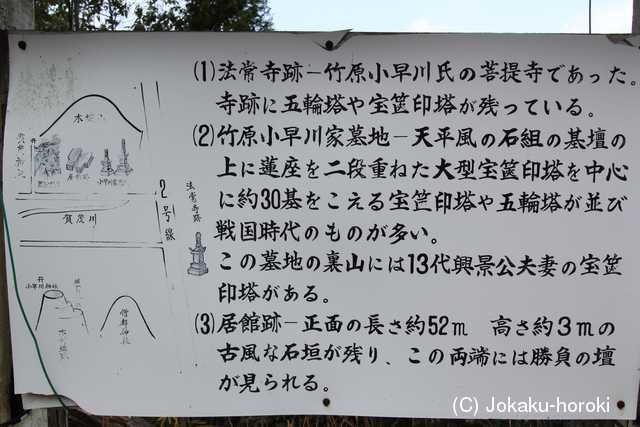 (1)法常寺跡ー竹原小早川氏の菩提寺であった。
寺跡に五輪塔や宝篋印塔が残っている。
(2)竹原小早川家墓地ー天平風の石組の基壇の
上に蓮座を二段重ねた大型宝篋印塔を中心
に約30基をこえる宝篋印塔や五輪塔が並び
戦国時代のものが多い。
この墓地の裏山には13代興景公夫妻の宝篋
印塔がある。
(3)居館跡ー正面の長さ約52m 高さ約3mの
古風な石垣が残り、この両端には勝負の壇
が見られる。
木村城
賀茂川
2号線
法常寺跡
小早川神社
僧都神社
(C) Jokaku-horoki